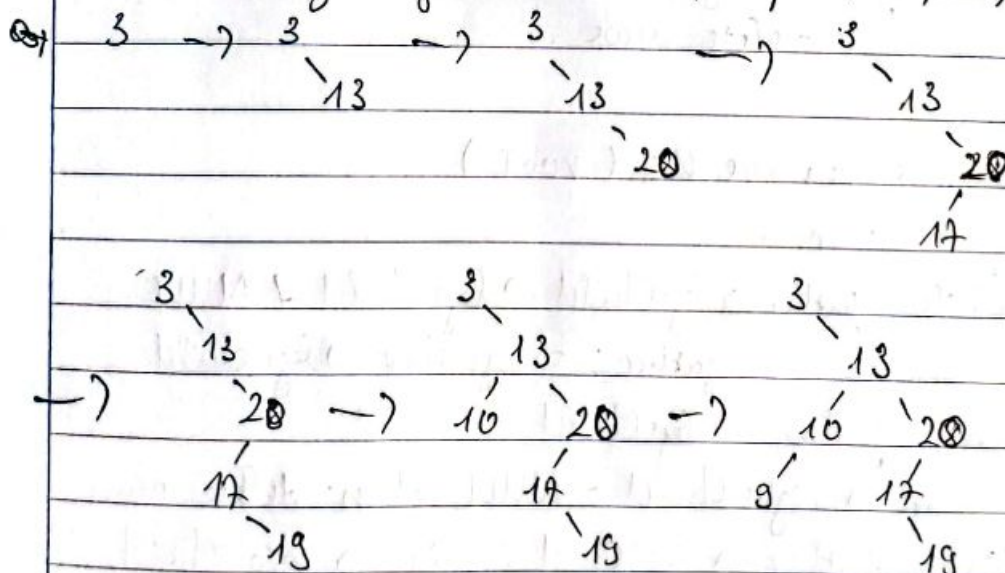 3 → 3 → 3 → 3
13 13 13
20 20
17
3 3 3
13 13 13
→ 20 → 10 20 → 10 20
17 17 9 17
19 19 19